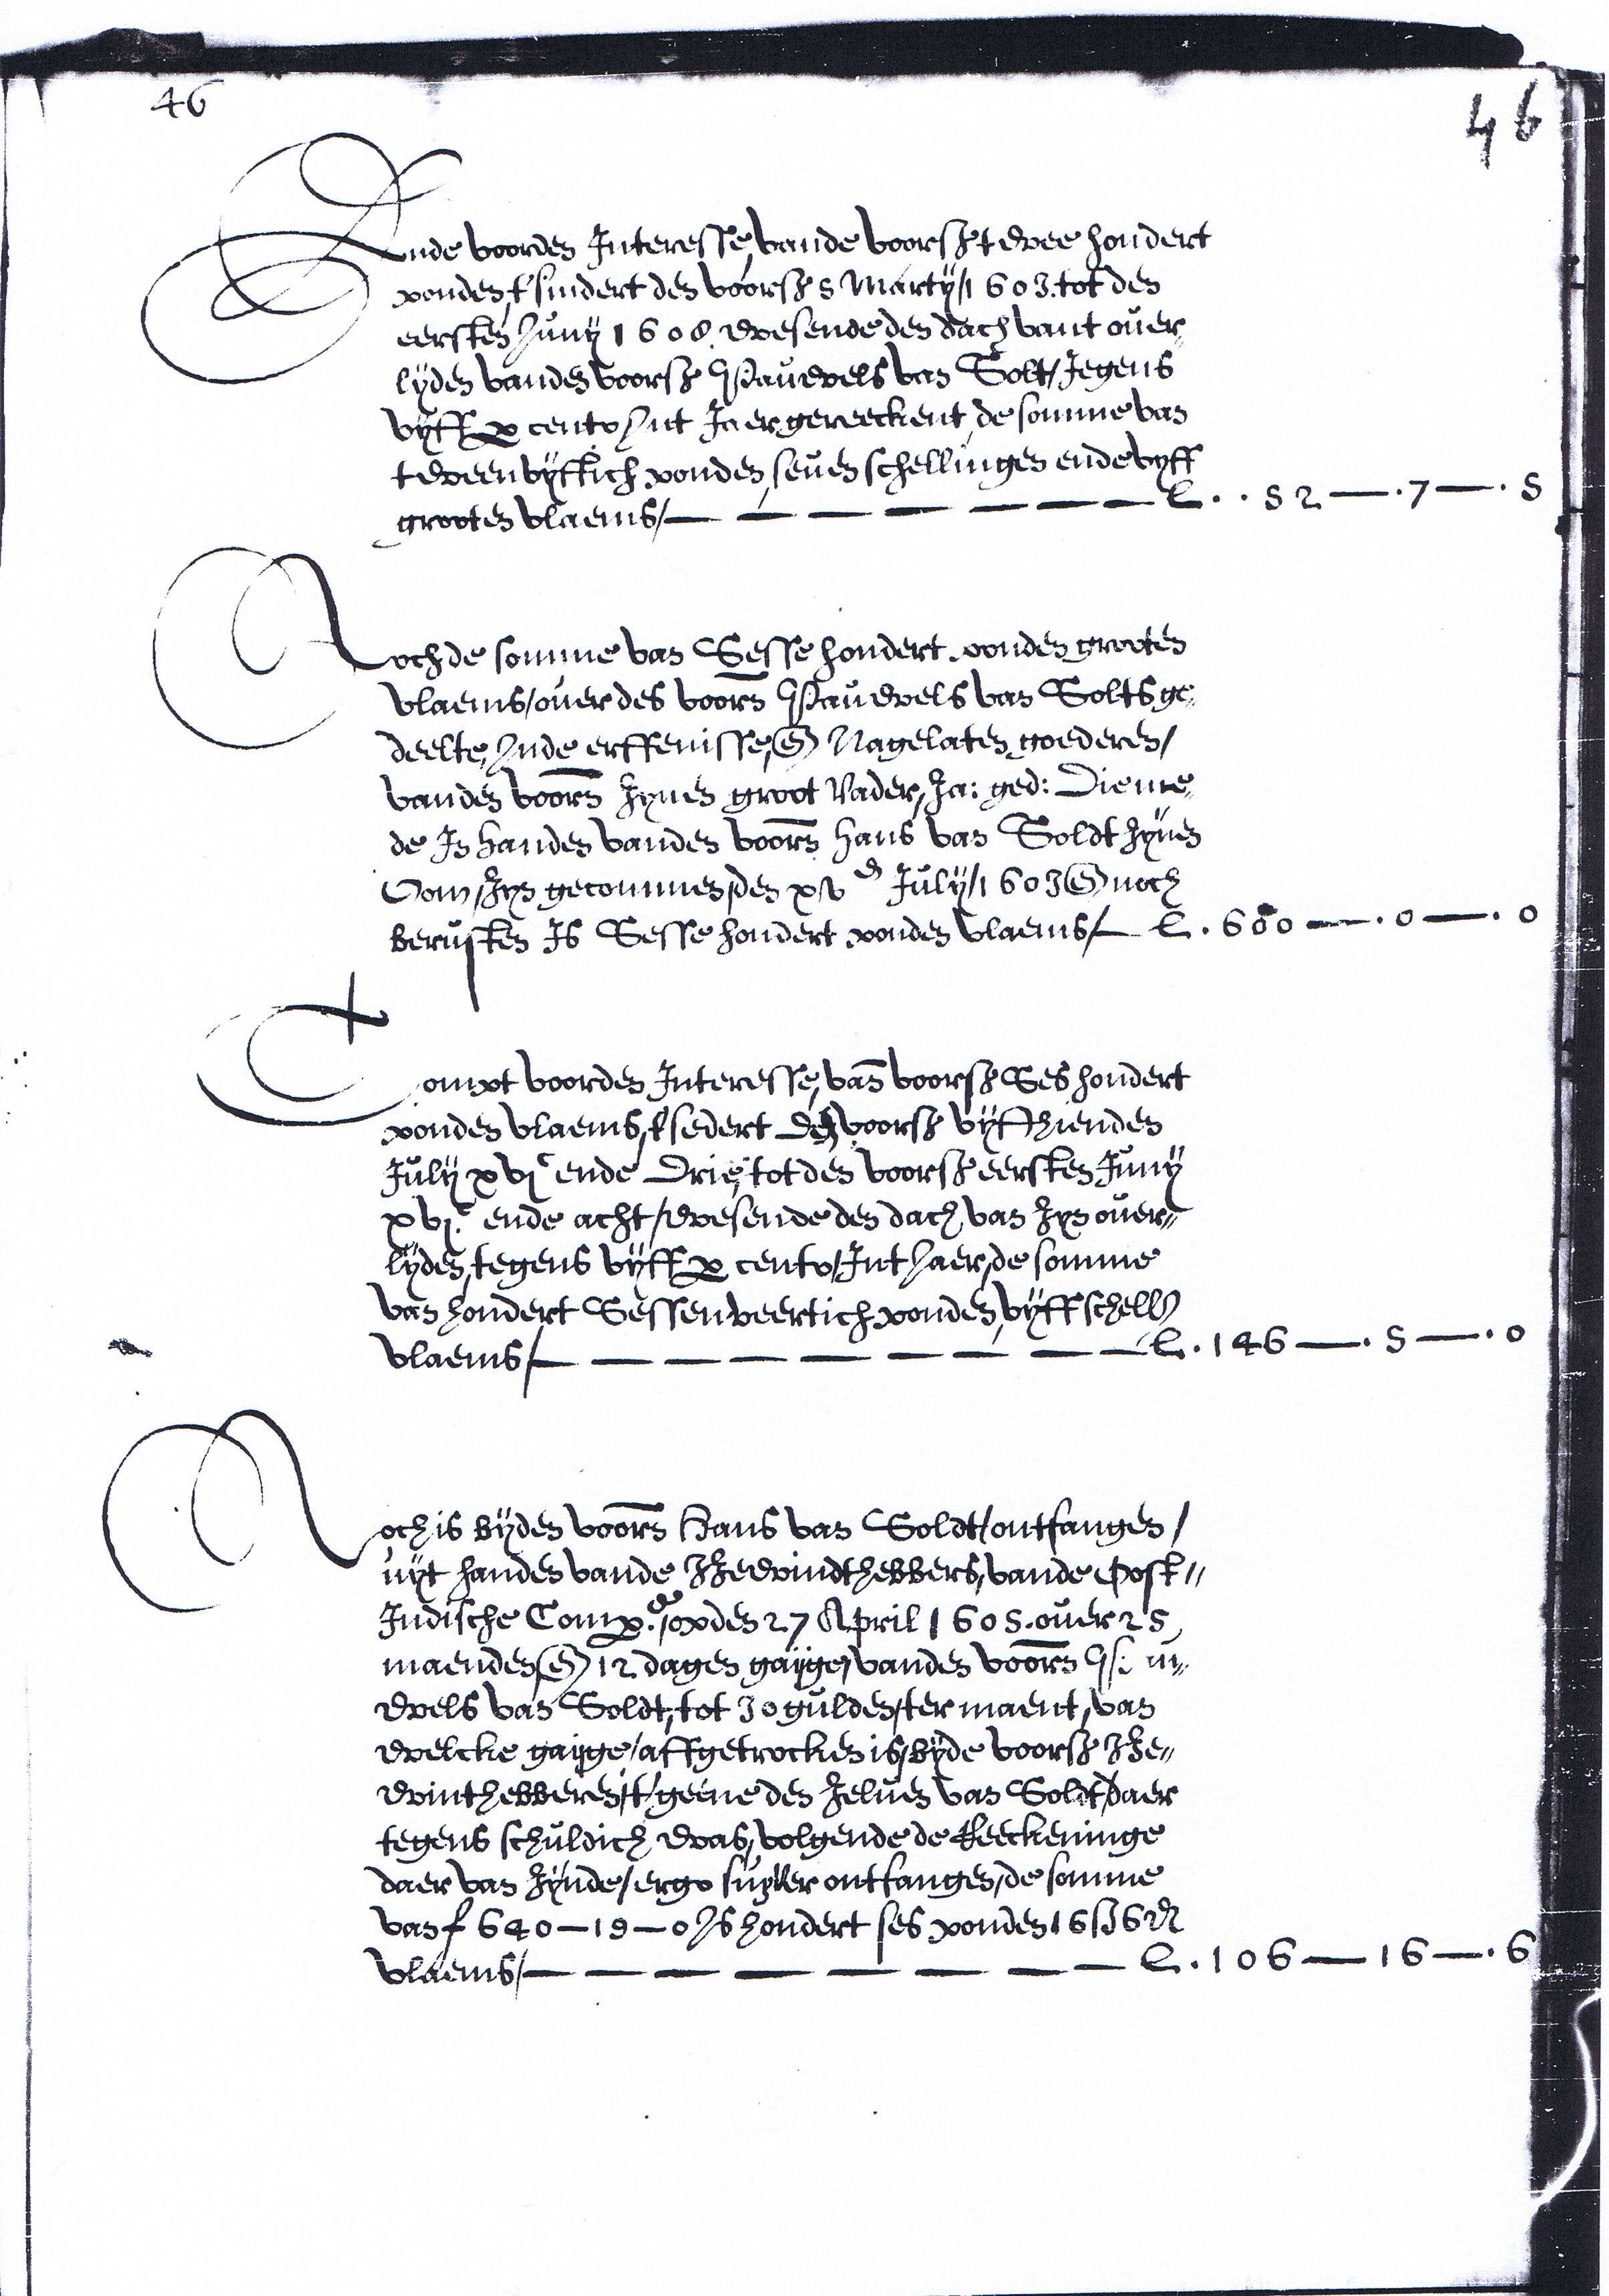 46
46
Ende voorden Interesse, vande voorsz twee hondert
ponden, t'sindert den voorsz 5 Martij / 1603. tot den
eersten Juny 1608. wesende den dach vant ouer,
lyden vanden voorsz Pauwels van Solt / Jegens
vyff p cento Int Jaer gereeckent, de somme van
tweenvyftich ponden, seuen schellingen ende vyff
grooten vlaems / L. . 52 — . 7 — . 5
Noch de somme van Sesse hondert ponden grooten
vlaems / ouer des voors Pauwels van Solts ge,
deelte, Inde erffenisse, en Nagelaten goederen /
vanden voors zynen groot Vader, Za: ged: Die me,
de In handen vanden voors Hans van Soldt zynen
Oom, zyn gecommen, den xv en July / 1603 en noch
berusten Is Sesse hondert ponden vlaems / L. 600 — . 0 — . 0
Compt voorden Interesse, van voorsz Ses hondert
ponden vlaems, t'sedert den voorsz vyfthienden
July xvj c ende Drie, tot den voorsz eersten Juny
xvj c ende acht / wesende den dach van zyn ouer,,
lyden, tegens vyff p cento / Int Jaer, de somme
van hondert Sessenveertich ponden, vyff schell
vlaems / L. 146 — . 5 — . 0
Noch is byden voors Hans van Soldt / ontfangen /
uyt handen vande Bewindthebbers, vande Oost,,
Indische Comp. ie, opden 27 April 1605. ouer 25
maenden en 12 dagen gayge, vanden voors
wels van Soldt, tot 30 gulden / ter maent, van
welcke gayge / affgetrocken is, byde voorsz Be,,
winthebberen, t'geene den zeluen van Soldt / daer
tegens schuldich was, volgende de Reeckeninge
daer van zynde / ergo suyver ontfangen, de somme
van f 640 — 19 — 0 Is hondert ses ponden 16 ß 6 d
vlaems / L. 106 — 16 — . 6